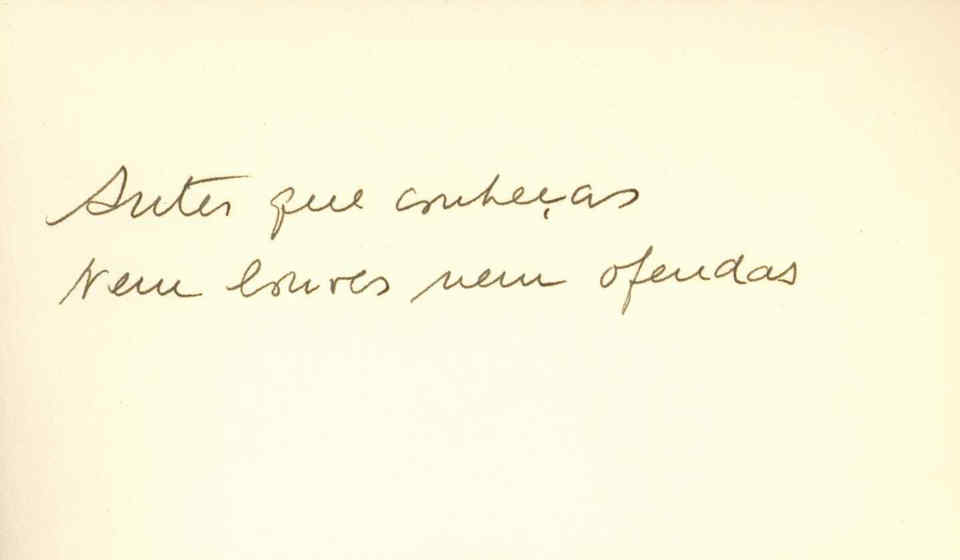 Antes que conheças
Nem louves nem ofendas